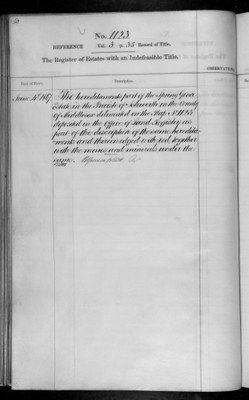 No. 1123
REFERENCE Vol. 3 p. 35 Record of Title.
The Register of Estates with an Indefeasible Title.
Date of Entry.
Description.
OBSERVATIONS.
The hereditaments part of the Spring Grove
Estate in the Parish of Isleworth in the County
of Middlesex delineated on the Map No. 1123
deposited in the Office of Land Registry as
part of the description of the same heredita-
ments and therein edged with red, together
with the mines and minerals under the
same.